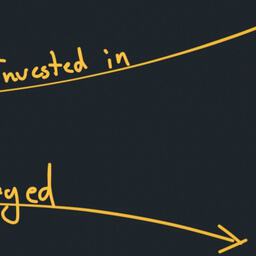 Invested in
ged